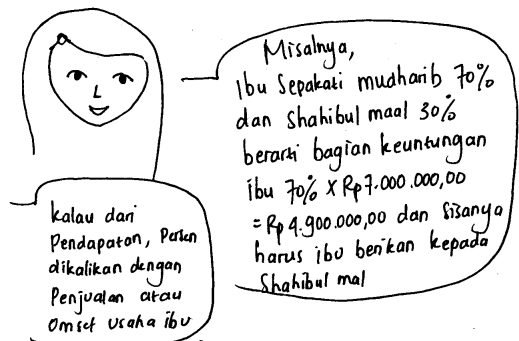 Misalnya,
Ibu Sepakati mudharib 70%
dan Shahibul maal 30%
berarti bagian keuntungan
ibu 70% X Rp7.000.000,00
= Rp 4.900.000,00 dan Sisanya
harus ibu berikan kepada
Shahibul mal
kalau dari
Pendapatan, Persen
dikalikan dengan
Penjualan atau
Omset usaha ibu